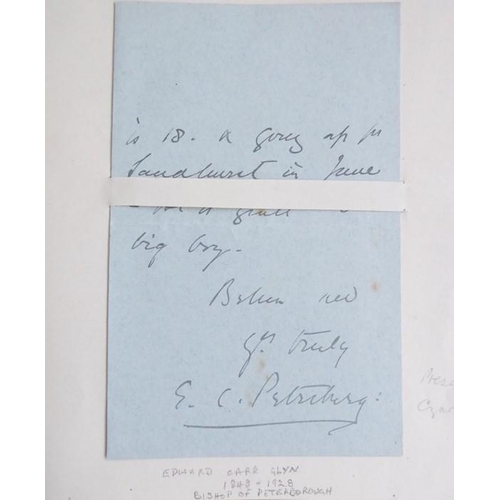 is 18. & going up for
Sandhurst in June
big boy.
Believe me
Yrs truly
E. C. Peterborg:
EDWARD CARR GLYN
1843 - 1928
BISHOP OF PETERBOROUGH